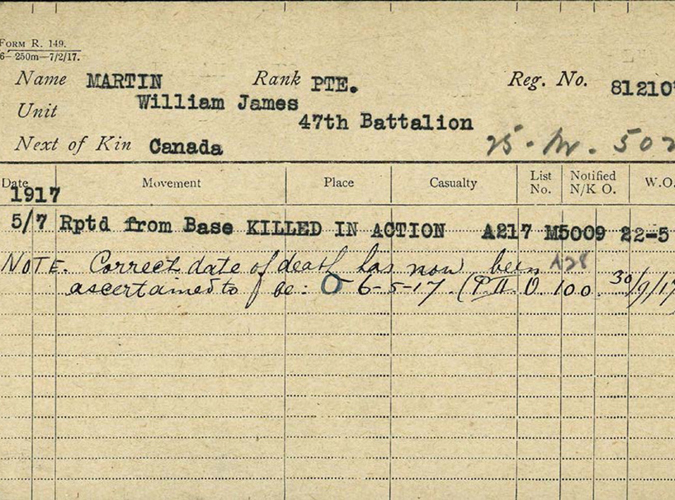 FORM R. 149.
6-250m-7/2/17.
Name MARTIN Rank PTE. Reg. No. 81210
William James
Unit 47th Battalion
Next of Kin Canada 25.
Date Movement Place Casualty List No. Notified N/K O. W.O.
1917
5/7 Rptd from Base KILLED IN ACTION A217 M5009 22-5
NOTE. Correct date of death has now been A28
ascertained to be: 6-5-17. (P.II. O. 100. 30/9/17